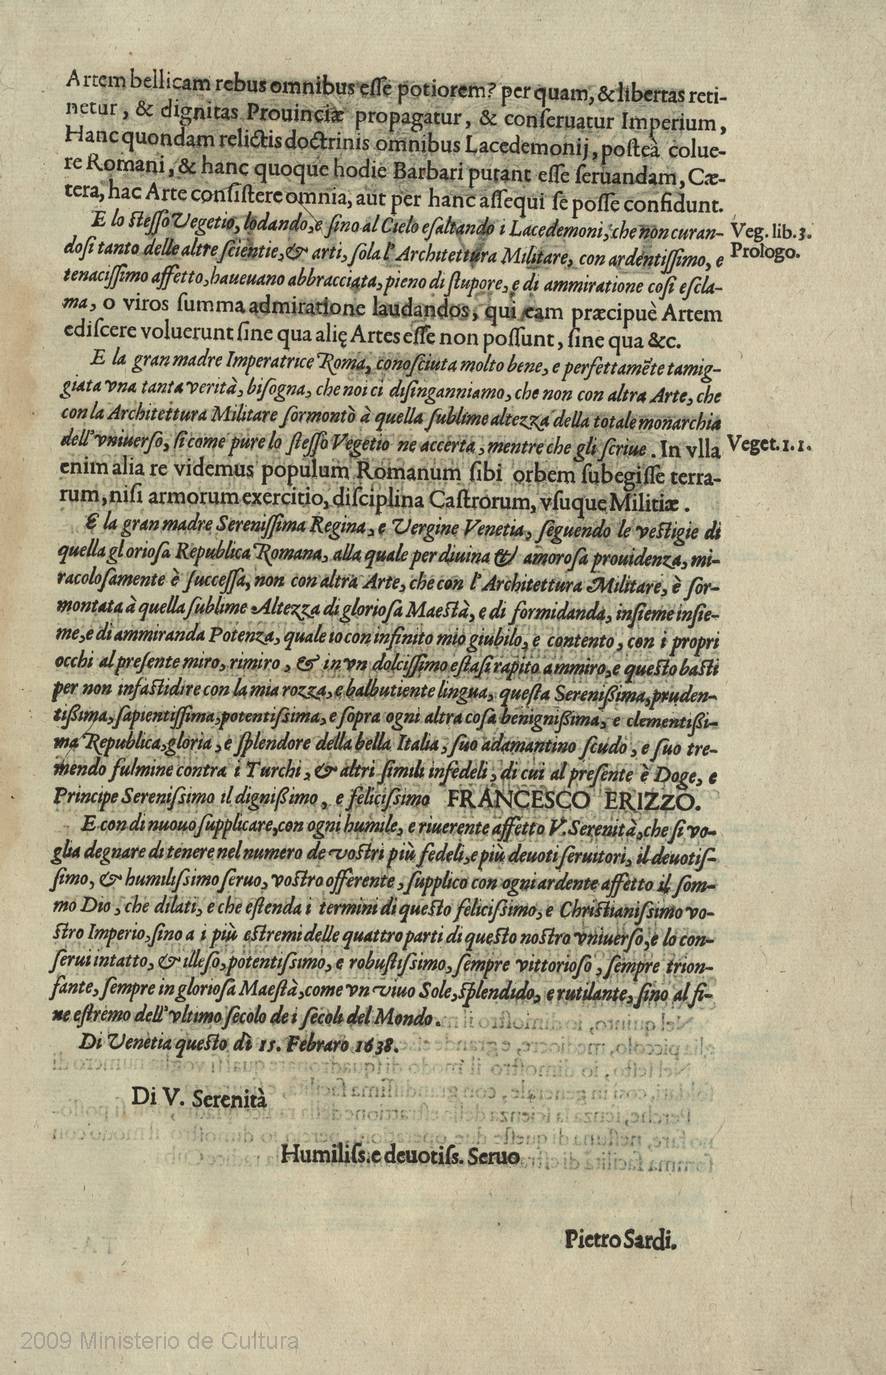 Artem bellicam rebus omnibus esse potiorem? per quam, & libertas reti-
netur, & dignitas Prouinciæ propagatur, & conseruatur Imperium,
Hanc quondam relictis doctrinis omnibus Lacedemonij, posteà colue-
re Romani, & hanc quoque hodie Barbari putant esse seruandam, Cæ-
tera, hac Arte consistere omnia, aut per hanc assequi se posse confidunt.
E lo stesso Vegetio, lodando, e sino al Cielo esaltando i Lacedemoni, che non curan-
Veg. lib. 3.
dosi tanto delle altre scientie, & arti, sola l'Architettura Militare, con ardentissimo, e
Prologo.
tenacissimo affetto, haueuano abbracciata, pieno di stupore, e di ammiratione così escla-
ma, o viros summa admiratione laudandos, qui eam præcipuè Artem
ediscere voluerunt sine qua alię Artes esse non possunt, sine qua &c.
E la gran madre Imperatrice Roma, conosciuta molto bene, e perfettamẽte tamig-
giata vna tanta verità, bisogna, che noi ci disinganniamo, che non con altra Arte, che
con la Architettura Militare sormontò à quella sublime altezza della totale monarchia
dell'vniuerso, si come pure lo stesso Vegetio ne accerta, mentre che gli scriue. In vlla
Veget. 1. 1.
enim alia re videmus populum Romanum sibi orbem subegisse terra-
rum, nisi armorum exercitio, disciplina Castrorum, vsuque Militiæ.
E la gran madre Serenissima Regina, e Vergine Venetia, seguendo le vestigie di
quella gloriosa Republica Romana, alla quale per diuina & amorosa prouidenza, mi-
racolosamente è successa, non con altra Arte, che con l'Architettura Militare, è sor-
montata à quella sublime Altezza di gloriosa Maestà, e di formidanda, insieme insie-
me, e di ammiranda Potenza, quale io con infinito mio giubilo, e contento, con i propri
occhi al presente miro, rimiro, & in vn dolcissimo estasi rapito ammiro, e questo basti
per non infastidire con la mia rozza, e balbutiente lingua, questa Serenissima, pruden-
tissima, sapientissima, potentissima, e sopra ogni altra cosa benignissima, e clementissi-
ma Republica, gloria, e splendore della bella Italia, suo adamantino scudo, e suo tre-
mendo fulmine contra i Turchi, & altri simili infedeli, di cui al presente è Doge, e
Principe Serenissimo il dignissimo, e felicissimo FRANCESCO ERIZZO.
E con di nuouo supplicare, con ogni humile, e riuerente affetto V. Serenità, che si vo-
glia degnare di tenere nel numero de vostri più fedeli, e più deuoti seruitori, il deuotis-
simo, & humilissimo seruo, vostro offerente, supplico con ogni ardente affetto il som-
mo Dio, che dilati, e che estenda i termini di questo felicissimo, e Christianissimo vo-
stro Imperio, sino a i più estremi delle quattro parti di questo nostro vniuerso, e lo con-
serui intatto, & illeso, potentissimo, e robustissimo, sempre vittorioso, sempre trion-
fante, sempre in gloriosa Maestà, come vn viuo Sole, splendido, e rutilante, sino al fi-
ne estremo dell'vltimo secolo de i secoli del Mondo.
Di Venetia questo dì 15. Febraro 1638.
Di V. Serenità
Humiliss. e deuotiss. Seruo
Pietro Sardi.
2009 Ministerio de Cultura